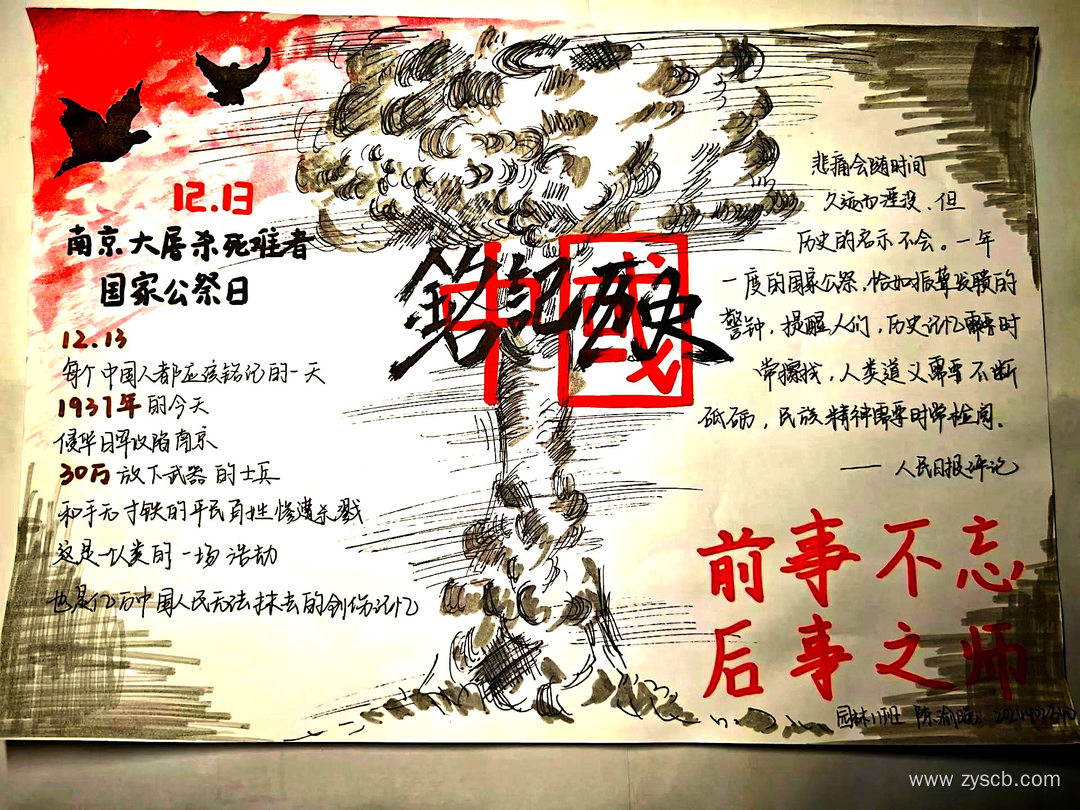 12.13
南京大屠杀死难者
国家公祭日
12.13
每个中国人都应该铭记的一天
1937年的今天
侵华日军攻陷南京
30万放下武器的士兵
和手无寸铁的平民百姓惨遭杀戮
这是人类的一场浩劫
也是亿万中国人民无法抹去的创伤记忆
中國
銘記历史
悲痛会随时间
久远而湮没、但
历史的启示不会。一年
一度的国家公祭,恰如振聋发聩的
警钟,提醒人们,历史记忆需要时
常擦拭,人类道义需要不断
砥砺,民族精神需要时常检阅.
——人民日报评论
前事不忘
后事之师
园林11班
www.zyscb.com